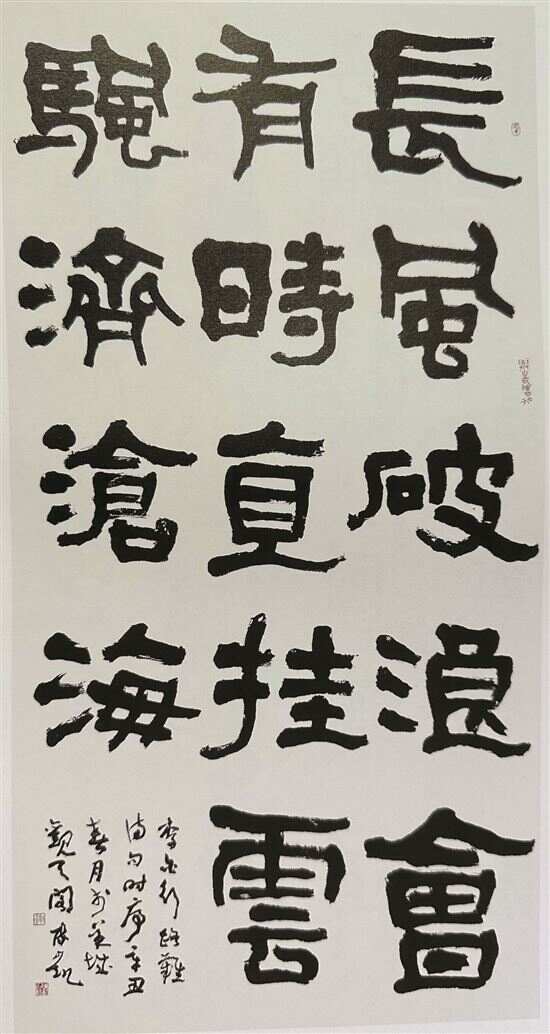 長風破浪會
有時直挂雲
颿濟滄海
李白行路難
詩句时序辛丑
春月於城
觀天閣